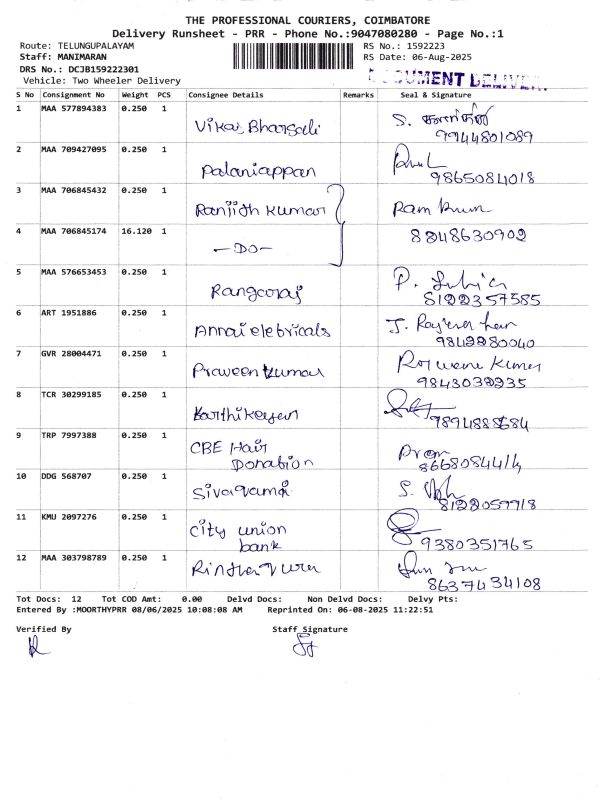 THE PROFESSIONAL COURIERS, COIMBATORE
Delivery Runsheet - PRR - Phone No.:9047080280 - Page No.:1
Route: TELUNGUPALAYAM RS No.: 1592223
Staff: MANIMARAN RS Date: 06-Aug-2025
DRS No.: DCJB159222301
DOCUMENT DELIVER
Vehicle: Two Wheeler Delivery
S No Consignment No Weight PCS Consignee Details Remarks Seal & Signature
1 MAA 577894383 0.250 1 Vikas Bhansali S.
9944801089
2 MAA 709427095 0.250 1 Palaniappan
9865084018
3 MAA 706845432 0.250 1 Ranjith Kumar Ram Kumar
4 MAA 706845174 16.120 1 -DO- 8248630902
5 MAA 576653453 0.250 1 Rangaraj P.
8122357585
6 ART 1951886 0.250 1 Annai elebricals J.
9842280040
7 GVR 28004471 0.250 1 Praveen Kumar Kumar
9843032235
8 TCR 30299185 0.250 1 Karthikeyen
9894888684
9 TRP 7997388 0.250 1 CBE Hair
Donation 8668084414
10 DDG 568707 0.250 1 Sivagami S.
8122057718
11 KMU 2097276 0.250 1 City union
bank 9380351765
12 MAA 303798789 0.250 1
8637434108
Tot Docs: 12 Tot COD Amt: 0.00 Delvd Docs: Non Delvd Docs: Delvy Pts:
Entered By :MOORTHYPRR 08/06/2025 10:08:08 AM Reprinted On: 06-08-2025 11:22:51
Verified By Staff Signature